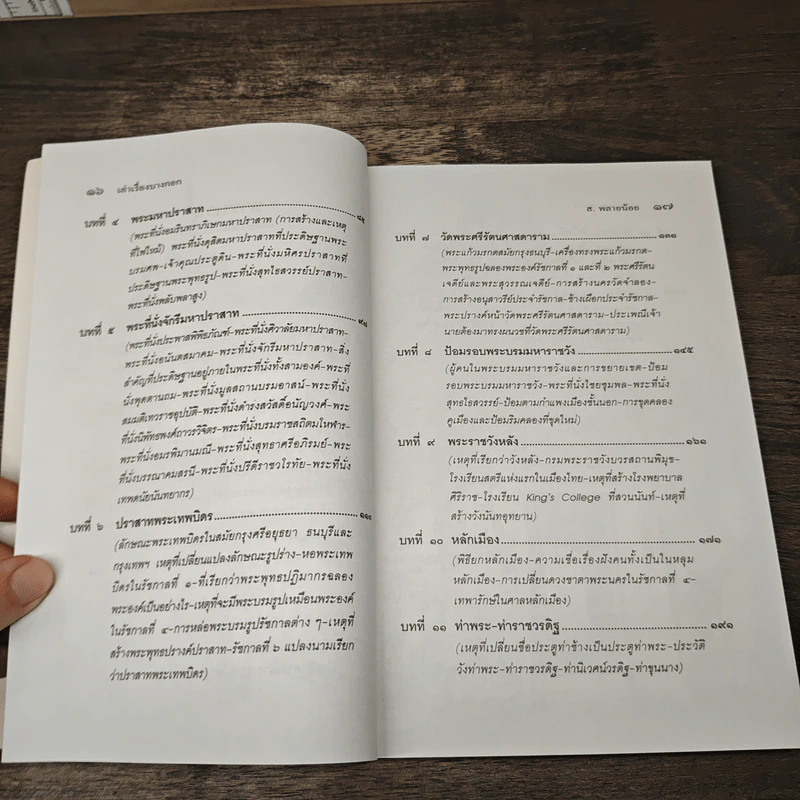 ๑๖ เล่าเรื่องบางกอก
บทที่ ๔ พระมหาปราสาท ๘๕
(พระที่นั่งอมรินทราภิเษกมหาปราสาท (การสร้างและเหตุ
ที่ไฟไหม้) พระที่นั่งดุสิตมหาปราสาทที่ประดิษฐานพระ
บรมศพ-เจ้าคุณประตูดิน-พระที่นั่งมหิศรปราสาทที่
ประดิษฐานพระพุทธรูป-พระที่นั่งสุทไธสวรรย์ปราสาท-
พระที่นั่งพลับพลาสูง)
บทที่ ๕ พระที่นั่งจักรีมหาปราสาท
(พระที่นั่งประพาสพิพิธภัณฑ์-พระที่นั่งศิวาลัยมหาปราสาท-
พระที่นั่งอนันตสมาคม-พระที่นั่งจักรีมหาปราสาท-สิ่ง
สำคัญที่ประดิษฐานอยู่ภายในพระที่นั่งทั้งสามองค์-พระที่
นั่งพุดตานถม-พระที่นั่งมูลสถานบรมอาสน์-พระที่นั่ง
สมมติเทวราชอุปบัติ-พระที่นั่งดำรงสวัสดิ์อนัญวงศ์-พระที่
นั่งนิพัทธพงศ์ถาวรวิจิตร-พระที่นั่งบรมราชสถิตมโหฬาร-
พระที่นั่งอมรพิมานมณี-พระที่นั่งสุทธาศรีอภิรมย์-พระ
ที่นั่งบรรณาคมสรนี-พระที่นั่งปรีดีราชวโรทัย-พระที่นั่ง
เทพดนัยนันทยากร)
บทที่ ๖ ปราสาทพระเทพบิดร ๑๑๐
(ลักษณะพระเทพบิดรในสมัยกรุงศรีอยุธยา ธนบุรีและ
กรุงเทพฯ เหตุที่เปลี่ยนแปลงลักษณะรูปร่าง-หอพระเทพ
บิดรในรัชกาลที่ ๑-ที่เรียกว่าพระพุทธปฏิมากรฉลอง
พระองค์เป็นอย่างไร-เหตุที่จะมีพระบรมรูปเหมือนพระองค์
ในรัชกาลที่ ๔-การหล่อพระบรมรูปรัชกาลต่าง ๆ-เหตุที่
สร้างพระพุทธปรางค์ปราสาท-รัชกาลที่ ๖ แปลงนามเรียก
ว่าปราสาทพระเทพบิดร)
ส. พลายน้อย ๑๗
บทที่ ๗ วัดพระศรีรัตนศาสดาราม ๑๓๑
(พระแก้วมรกตสมัยกรุงธนบุรี-เครื่องทรงพระแก้วมรกต-
พระพุทธรูปฉลองพระองค์รัชกาลที่ ๑ และที่ ๒ พระศรีรัตน
เจดีย์และพระสุวรรณเจดีย์-การสร้างนครวัดจำลอง-
การสร้างอนุสาวรีย์ประจำรัชกาล-ช้างเผือกประจำรัชกาล-
พระปรางค์หน้าวัดพระศรีรัตนศาสดาราม-ประเพณีเจ้า
นายต้องมาทรงผนวชที่วัดพระศรีรัตนศาสดาราม)
บทที่ ๘ ป้อมรอบพระบรมมหาราชวัง ๑๔๕
(ผู้คนในพระบรมมหาราชวังและการขยายเขต-ป้อม
รอบพระบรมมหาราชวัง-พระที่นั่งไชยชุมพล-พระที่นั่ง
สุทไธสวรรย์-ป้อมตามกำแพงเมืองชั้นนอก-การขุดคลอง
คูเมืองและป้อมริมคลองที่ขุดใหม่)
บทที่ ๙ พระราชวังหลัง ๑๖๑
(เหตุที่เรียกว่าวังหลัง-กรมพระราชวังบวรสถานพิมุข-
โรงเรียนสตรีแห่งแรกในเมืองไทย-เหตุที่สร้างโรงพยาบาล
ศิริราช-โรงเรียน King's College ที่สวนนันท์-เหตุที่
สร้างวังนันทอุทยาน)
บทที่ ๑๐ หลักเมือง ๑๗๑
(พิธียกหลักเมือง-ความเชื่อเรื่องฝังคนทั้งเป็นในหลุม
หลักเมือง-การเปลี่ยนดวงชาตาพระนครในรัชกาลที่ ๔-
เทพารักษ์ในศาลหลักเมือง)
บทที่ ๑๑ ท่าพระ-ท่าราชวรดิฐ ๑๙๑
(เหตุที่เปลี่ยนชื่อประตูท่าช้างเป็นประตูท่าพระ-ประวัติ
วังท่าพระ-ท่าราชวรดิฐ-ท่านิเวศน์วรดิฐ-ท่าขุนนาง)